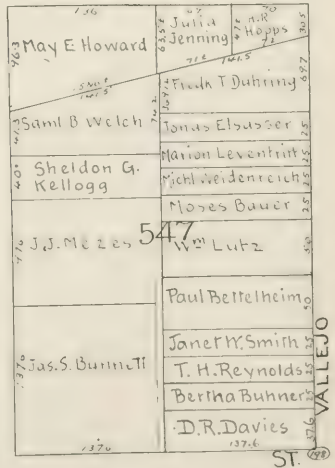 136
May E Howard
Julia
Jenning
A.R
Hopps
Frank T Duhring
Saml B Welch
Jonas Elsasser
Marion Leventritt
Sheldon G.
Kellogg
Michl Weidenreich
Moses Bauer
25
J.J. Mezes
547
Wm Lutz
50
Paul Bettelheim
50
Jas. S. Bunnell
Janet W. Smith 25
T. H. Reynolds 25
Bertha Buhner 25
D.R. Davies
137.6
137.6
VALLEJO
ST.